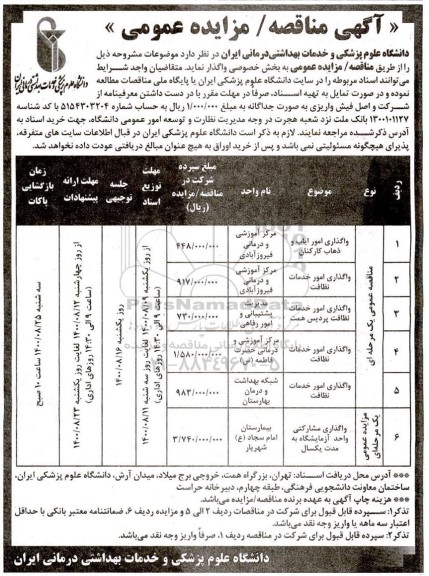 « آگهی مناقصه/ مزایده عمومی »
دانشگاه علوم پزشکی و خدمات بهداشتی درمانی ایران
دانشگاه علوم پزشکی و خدمات بهداشتی‌درمانی ایران در نظر دارد موضوعات مشروحه ذیل
را از طریق مناقصه/ مزایده عمومی به بخش خصوصی واگذار نماید. متقاضیان واجد شرایط
می‌توانند اسناد مربوطه را در سایت دانشگاه علوم پزشکی ایران یا پایگاه ملی مناقصات مطالعه
نموده و در صورت تمایل به تهیه اسناد، صرفاً در مهلت مقرر با در دست داشتن معرفینامه از
شرکت و اصل فیش واریزی به صورت جداگانه به مبلغ ۱/۰۰۰/۰۰۰ ریال به حساب شماره ۵۱۵۴۳۰۳۲۰۴ با کد شناسه
۱۳۰۰۱۰۱۱۲۷ بانک ملت نزد شعبه هجرت در وجه مدیریت نظارت و توسعه امور عمومی دانشگاه، جهت خرید اسناد به
آدرس ذکرشده مراجعه نمایند. لازم به ذکر است دانشگاه علوم پزشکی ایران در قبال اطلاعات سایت های متفرقه،
پذیرای هیچگونه مسئولیتی نمی باشد و پس از خرید اوراق به هیچ عنوان مبالغ دریافتی عودت داده نخواهد شد.
ردیف نوع موضوع نام واحد مبلغ سپرده شرکت در مناقصه/مزایده (ریال) مهلت توزیع اسناد جلسه توجیهی مهلت ارائه پیشنهادات زمان بازگشایی پاکات
مناقصه عمومی یک مرحله ای
۱ واگذاری امور ایاب و ذهاب کارکنان مرکز آموزشی و درمانی فیروزآبادی ۴۴۸/۰۰۰/۰۰۰
۲ واگذاری امور خدمات نظافت مرکز آموزشی و درمانی فیروزآبادی ۹۱۷/۰۰۰/۰۰۰
۳ واگذاری امور خدمات نظافت پردیس همت مدیریت پشتیبانی و امور رفاهی ۷۳۰/۰۰۰/۰۰۰
۴ واگذاری امور خدمات نظافت مرکز آموزشی و درمانی حضرت فاطمه (س) ۱/۵۸۰/۰۰۰/۰۰۰
۵ واگذاری امور خدمات نظافت شبکه بهداشت و درمان بهارستان ۹۸۳/۰۰۰/۰۰۰
مزایده عمومی یک مرحله‌ای
۶ واگذاری مشارکتی واحد آزمایشگاه به مدت یکسال بیمارستان امام سجاد (ع) شهریار ۳/۷۴۰/۰۰۰/۰۰۰
از روز یکشنبه ۱۴۰۰/۰۸/۰۹ لغایت روز سه شنبه ۱۴۰۰/۰۸/۱۱
(ساعت ۹ الی ۱۴:۳۰ روزهای اداری)
روز یکشنبه ۱۴۰۰/۰۸/۱۶
از روز چهارشنبه ۱۴۰۰/۰۸/۱۲ لغایت روز یکشنبه ۱۴۰۰/۰۸/۲۳
(ساعت ۹ الی ۱۴:۳۰ روزهای اداری)
سه شنبه ۱۴۰۰/۰۸/۲۵ ساعت ۱۰ صبح
*** آدرس محل دریافت اسناد: تهران، بزرگراه همت، خروجی برج میلاد، میدان آرش، دانشگاه علوم پزشکی ایران،
ساختمان معاونت دانشجویی فرهنگی، طبقه چهارم، دبیرخانه حراست
*** هزینه چاپ آگهی به عهده برنده مناقصه/مزایده می‌باشد.
تذکر۱: سپرده قابل قبول برای شرکت در مناقصات ردیف ۲ الی ۵ و مزایده ردیف ۶، ضمانتنامه معتبر بانکی با حداقل
اعتبار سه ماهه یا واریز وجه نقد می‌باشد.
تذکر۲: سپرده قابل قبول برای شرکت در مناقصه ردیف ۱، صرفاً واریز وجه نقد می‌باشد.
دانشگاه علوم پزشکی و خدمات بهداشتی درمانی ایران